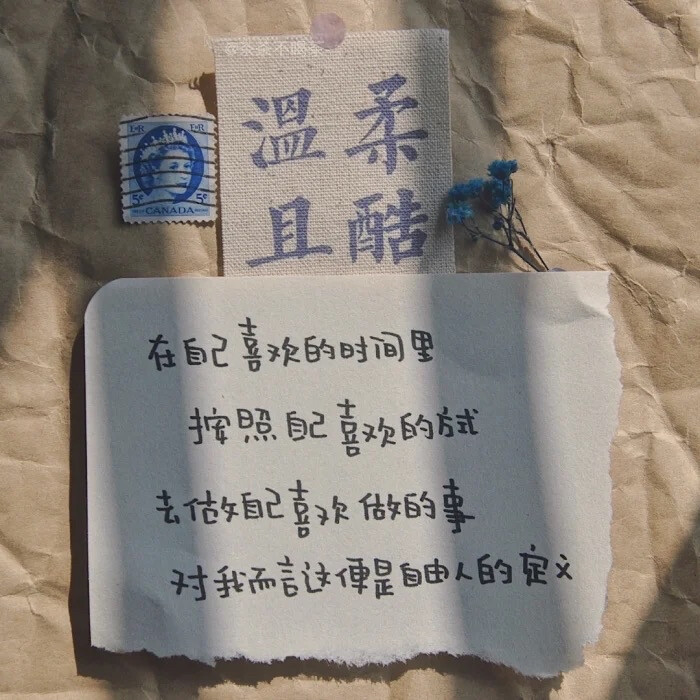 E R
E R
5¢
5¢
CANADA
溫柔
且酷
在自己喜欢的时间里
按照自己喜欢的方式
去做自己喜欢做的事
对我而言这便是自由人的定义